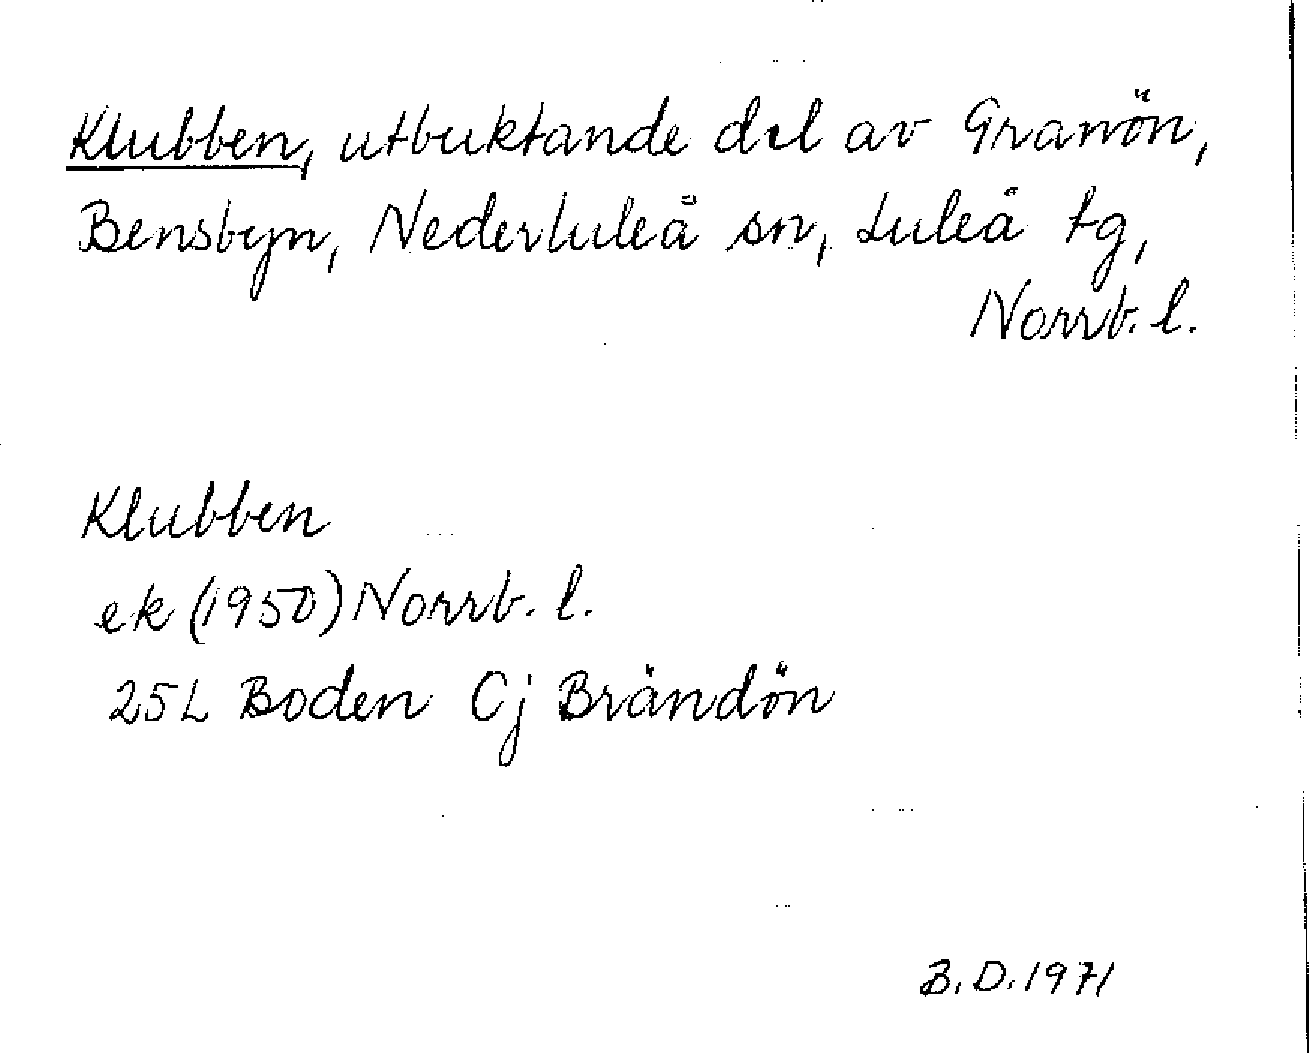 Klubben, utbuktande del av Granön,
Bensbyn, Nederluleå sn, Luleå tg,
Norrb. l.
Klubben
ek (1950) Norrb. l.
25L Boden Cj Brändön
B.D. 1971